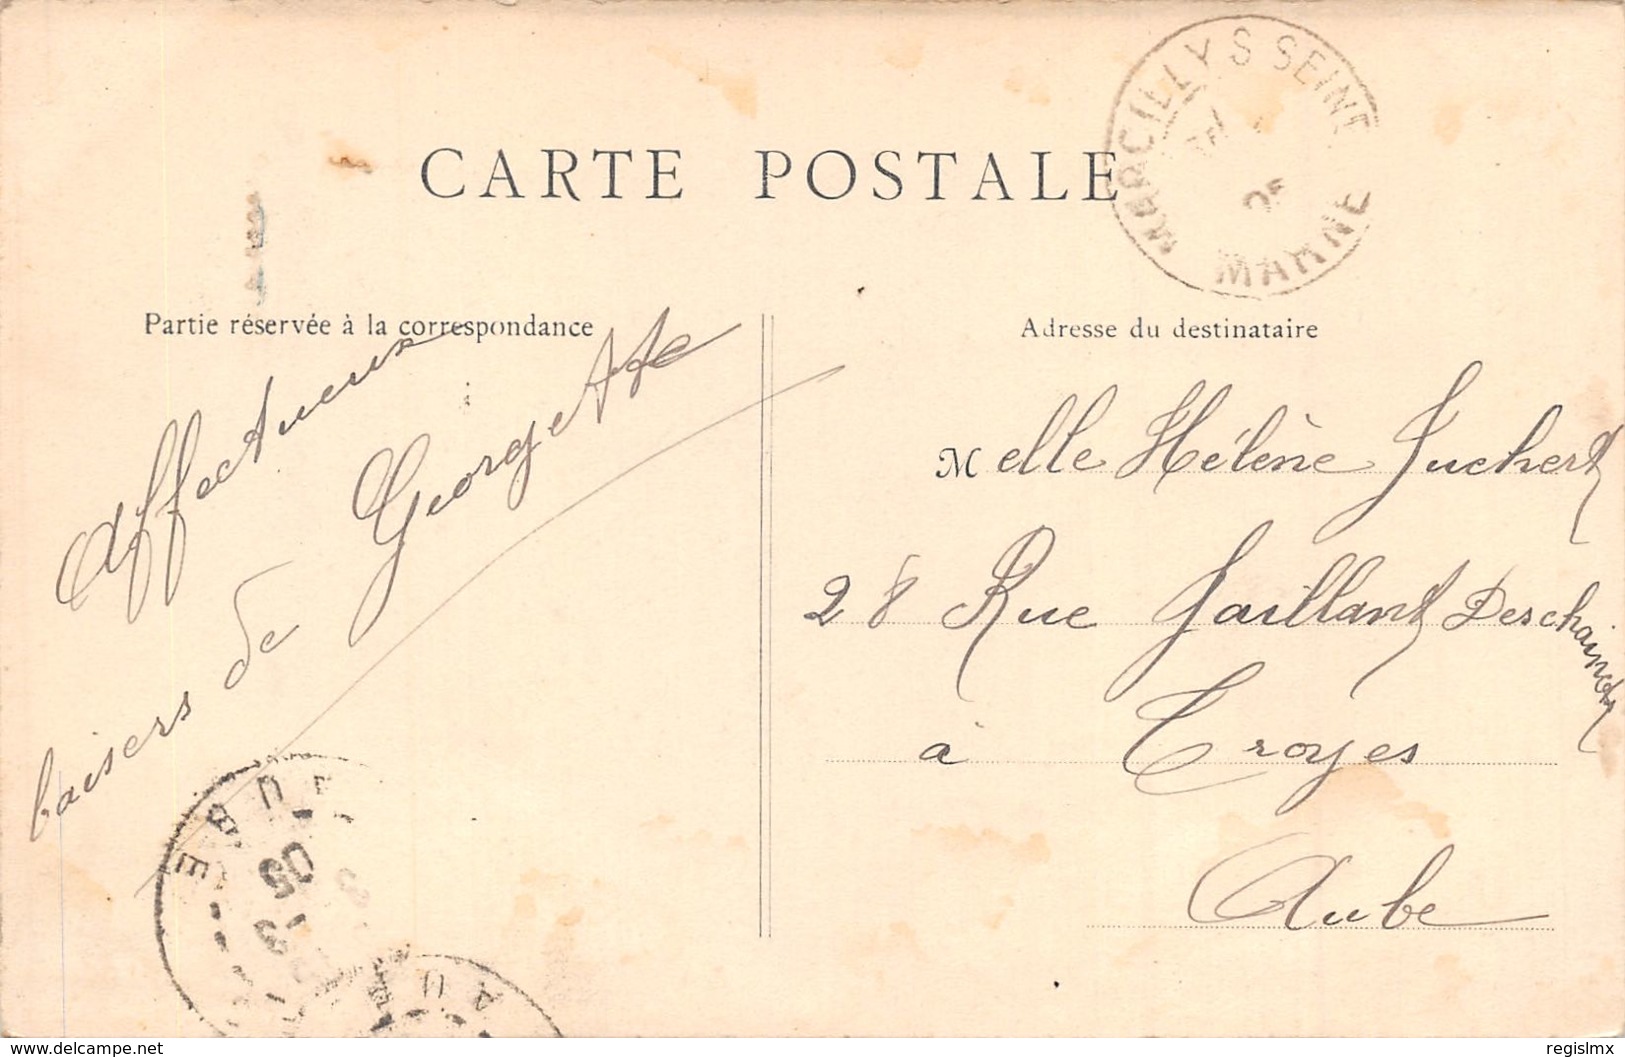 CARTE POSTALE
MARCILLY S SEINE
05
MARNE
Partie réservée à la correspondance
Affectueux
baisers de Georgette
Adresse du destinataire
Melle Hélène
28 Rue Gaillard
à Troyes
Aube
AUBE
05
AU
www.delcampe.net
regislmx